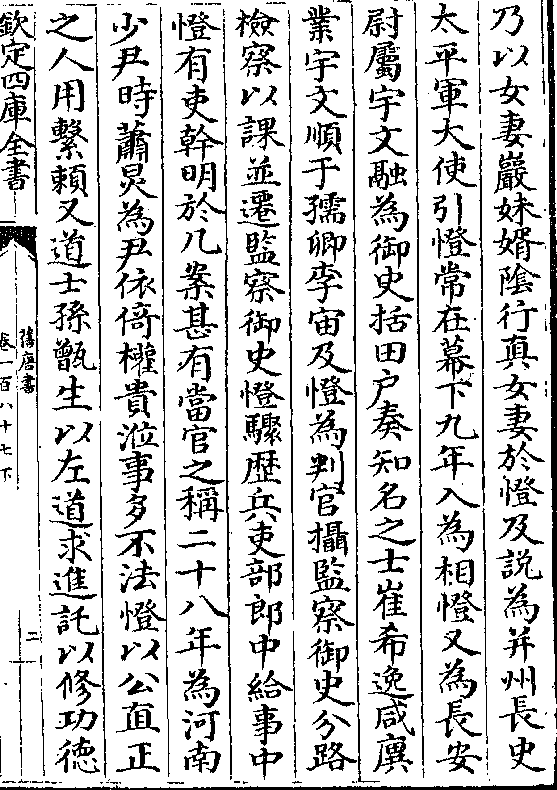 乃以女妻巖妹婿陰行真女妻於憕及説為并州長史
太平軍大使引憕常在幕下九年入為相憕又為長安
尉屬宇文融為御史括田户奏知名之士崔希逸咸廙
業宇文順于孺卿李宙及憕為判官攝監察御史分路
檢察以課並遷監察御史憕驟歴兵吏部郎中給事中
憕有吏幹明於几案甚有當官之稱二十八年為河南
少尹時蕭炅為尹依倚權貴涖事多不法憕以公直正
之人用繫頼又道士孫甑生以左道求進託以修功德
欽定四庫全書
舊唐書
卷一百八十七下
二